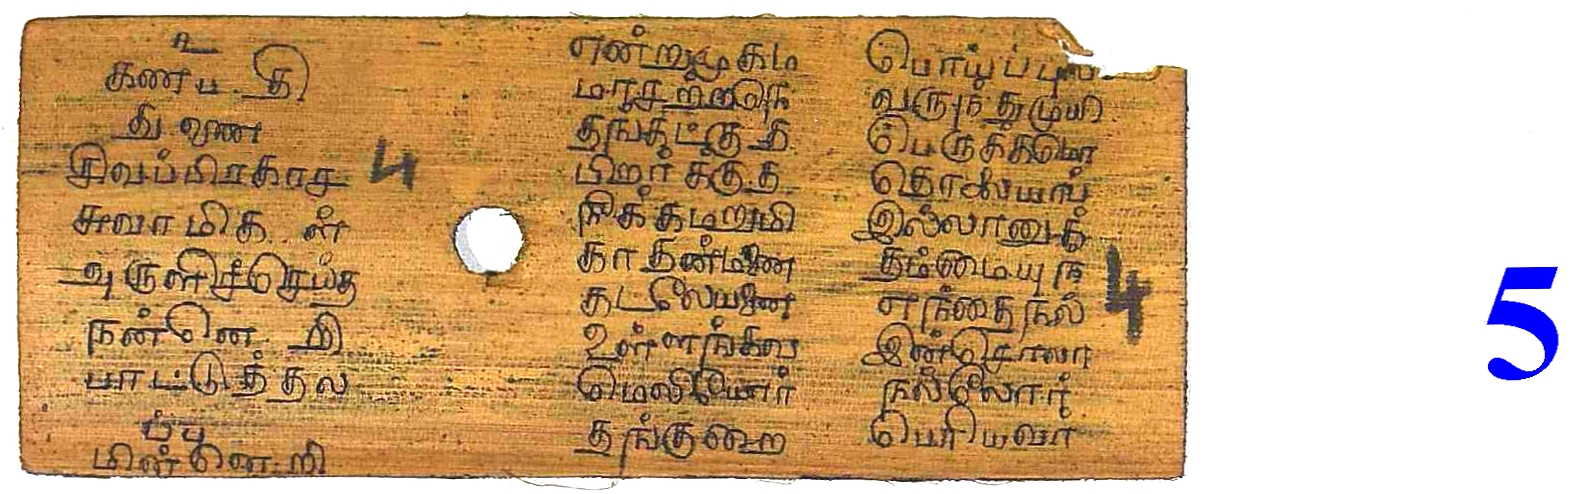 உ
கணபதி
துணை
சிவப்பிரகாச
சுவாமிகள்
அருளிச்செய்த
நன்னெறி
பாட்டுத்தலை
ப்பு
மின்னெறி
4
என்றுமுகம
மாசற்றநெ
தங்கட்கு தவி
பிறர்க்குத
நீக்கமறுமி
காதன்மனை
கடலேயனை
உள்ளங்கவ
மெலியோர்
தங்குறை
பொய்ப்புல
வருந்துமுயி
பெருக்கமொ
தொலையாப்
இல்லானுக்
தம்மையுந
எந்தைநல்
இன்சொலா
நல்லோர்
பெரியவர்
4
5